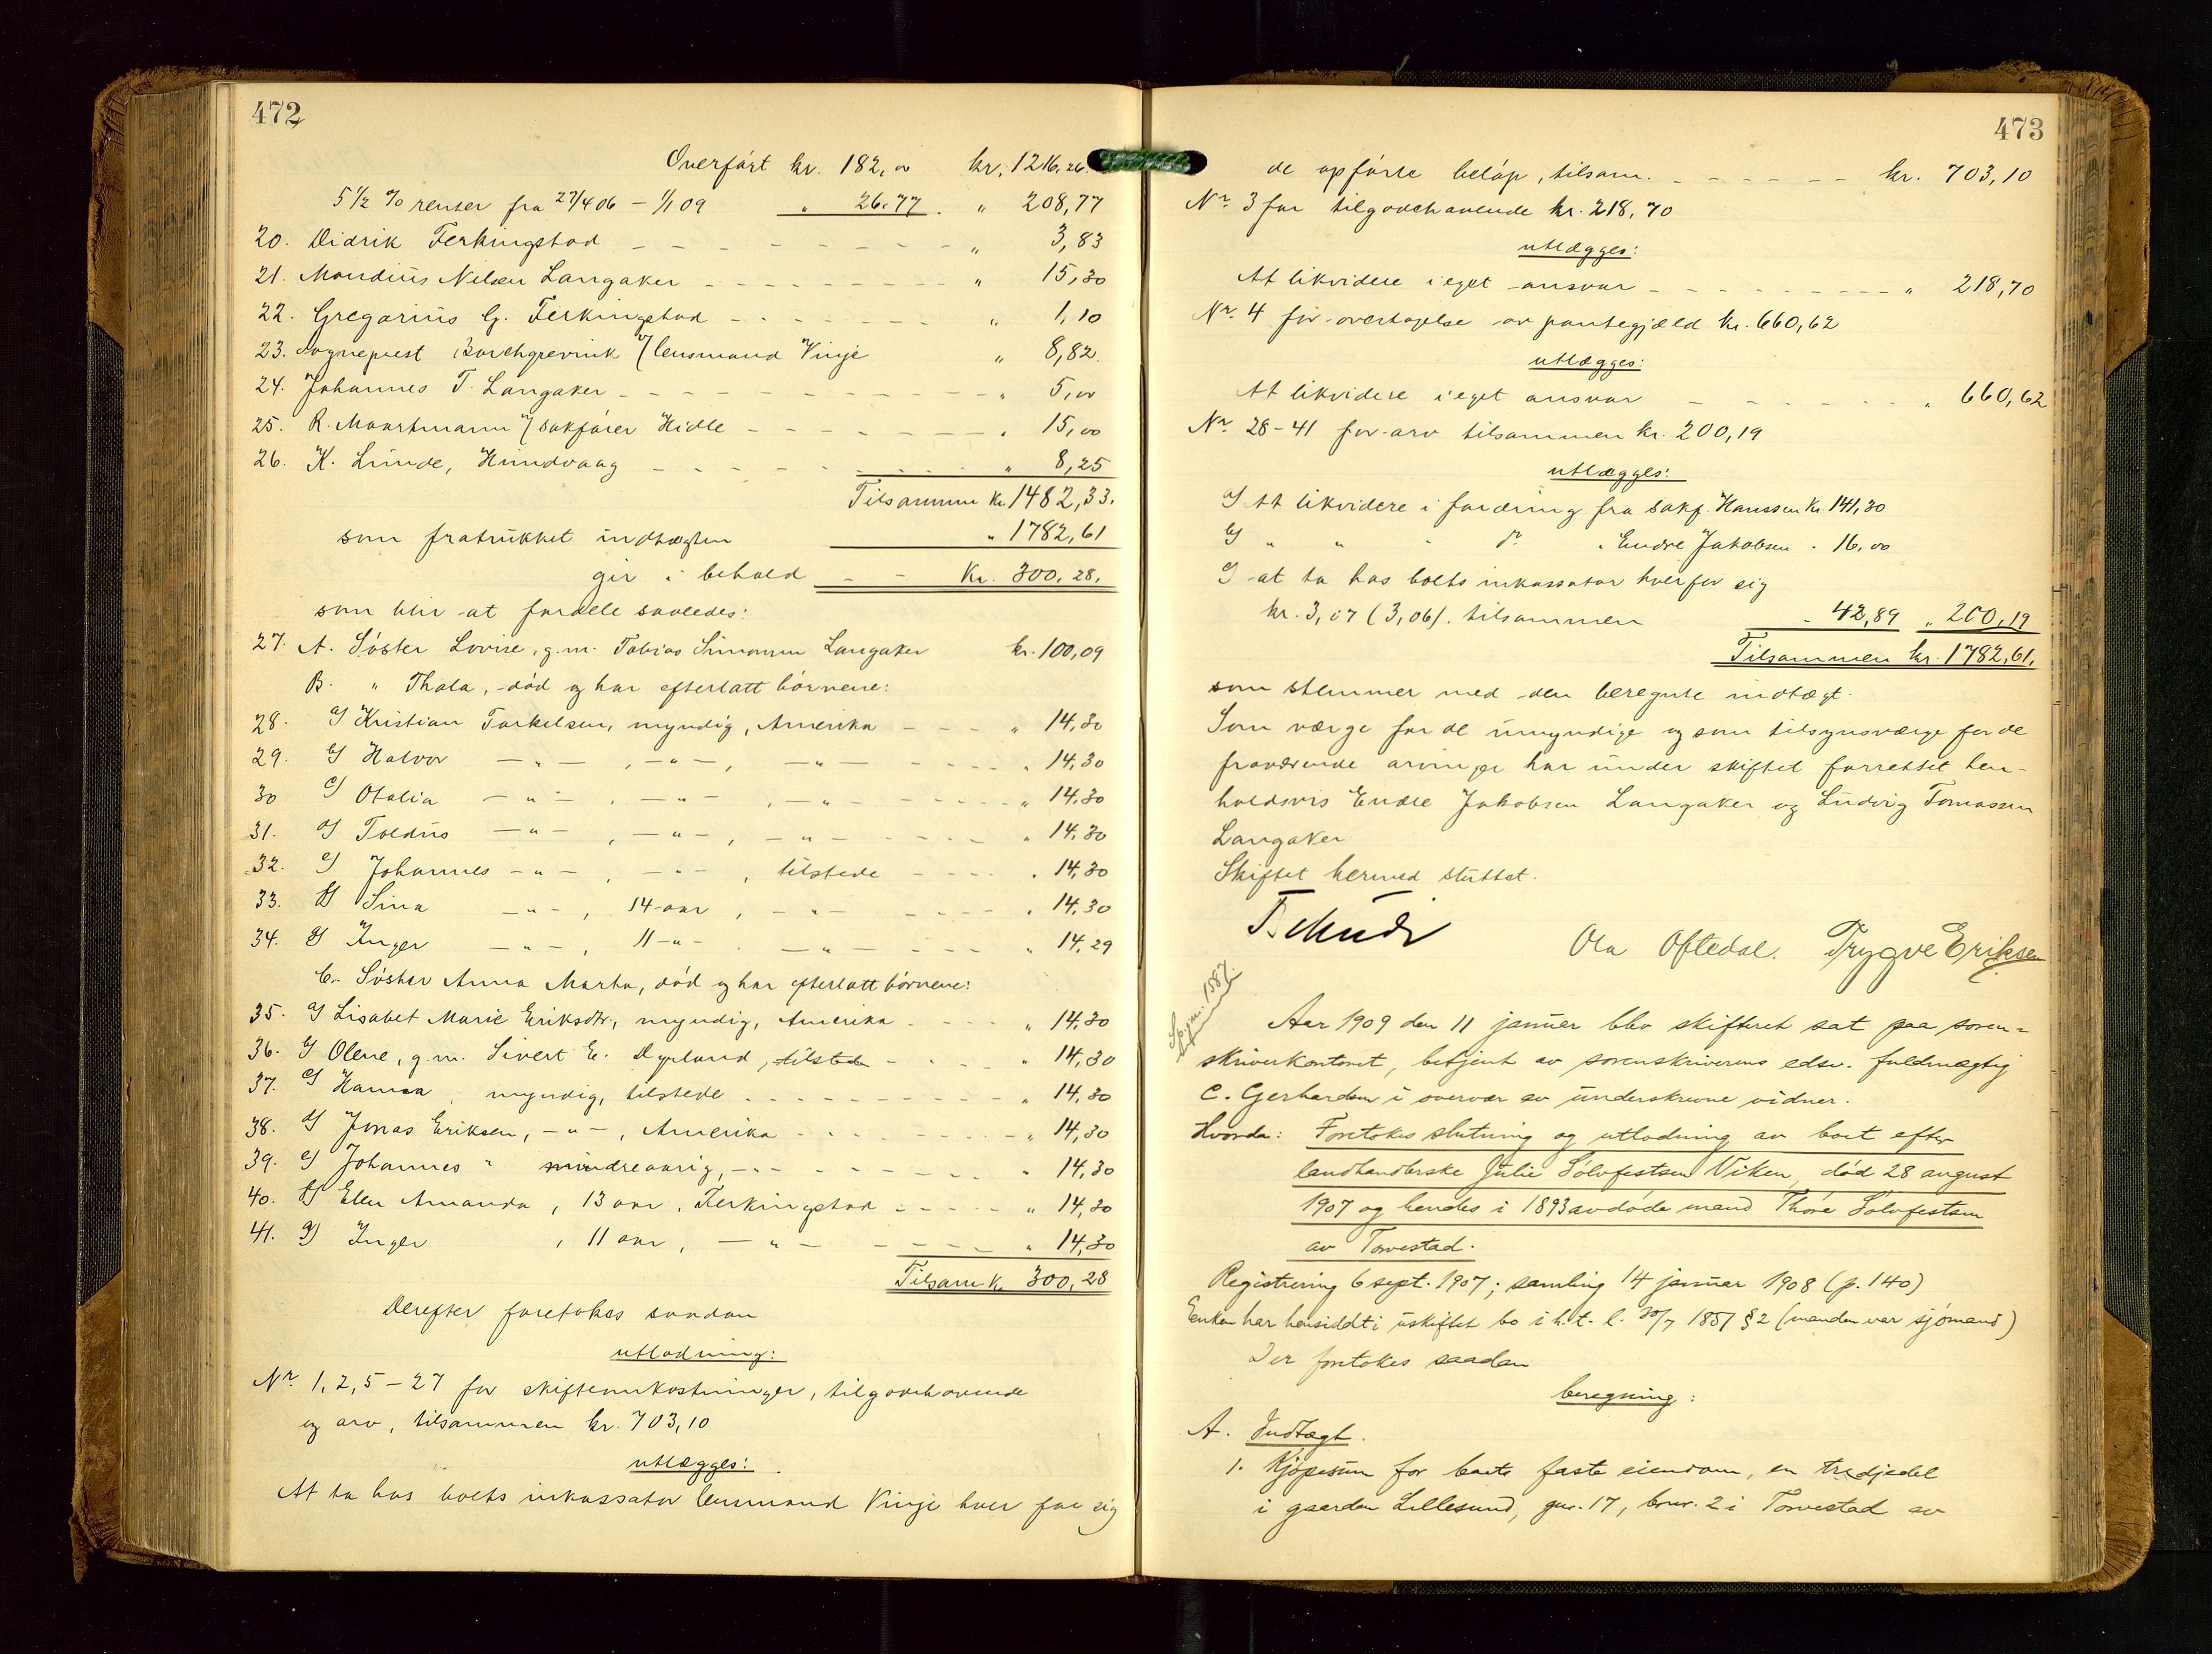 472
Overført kr. 182,00 kr. 1216,26
5 1/2 % renter fra 27/4 06 – 1/1 09 " 26.77. " 208,77
20. Didrik Ferkingstad – – – – – – – – – " 3,83
21. Mandius Nilsen Langaker – – – – – – – – " 15,30
22. Gregorius G. Ferkingstad – – – – – – – " 1,10
23. Sogneprest Borchgrevink v/ lensmand Vinje " 8,82.
24. Johannes T. Langaker – – – – – – – – – " 5,00
25. R. Moartmann v/ sakfører Hidle – – – – – – " 15,00
26. K. Lunde, Hundvaag – – – – – – – " 8,25
Tilsammen Kr. 1482,33.
som fratrukket indtægten " 1782,61
gir i behold – – Kr. 300,28.
som blir at fordele saaledes:
27. A. Søster Lovise, g.m. Tobias Simonsen Langaker kr. 100,09
B. " Thala, død og har efterlatt børnene:
28. a) Kristian Torkelsen, myndig, Amerika – – – " 14,30
29. b) Halvor – " – , – " – , – " – – – – – " 14,30
30 c) Otalia – " – , – " – , – " – – – – – " 14,30
31. d) Toldus – " – , – " – , – " – – – – – " 14,30
32. e) Johannes – " – , – " – , tilstede – – – – " 14,30
33. f) Sina – " – , 14 aar , – " – – – – – " 14,30
34. g) Inger – " – , 11 – " – . – " – – – – – " 14,29
C. Søster Anna Marta, død og har efterlatt børnene:
35. a) Lisabet Marie Eriksdtr, myndig, Amerika – – – – " 14,30
36. b) Olene, g.m. Sivert E. Dypland, tilstede – – – " 14,30
37. c) Hanna , myndig, tilstede – – – – – – – – " 14,30
38. d) Jonas Eriksen, – " – , Amerika – – – – – – – " 14,30
39. e) Johannes " mindreaarig, – " – – – – – – – " 14,30
40. f) Elen Amanda , 13 aar , Ferkingstad – – – – – " 14,30
41. g) Inger , 11 aar , – " – – – – – " 14,30
Tilsam Kr. 300,28
Derefter foretokes saadan
utlodning:
Nr. 1, 2, 5 – 27 for skifteomkostninger, tilgodehavende
og arv, tilsammen kr. 703,10
utlægges:
At ta hos boets inkassator lensmand Vinje hver for sig
473
de opførte beløp, tilsam. – – – – – – kr. 703,10
Nr. 3 for tilgodehavende kr. 218,70
utlægges:
At likvidere i eget ansvar – – – – – – – – – " 218,70
Nr. 4 for overtagelse av pantegjæld kr. 660,62
utlægges:
At likvidere i eget ansvar – – – – – – – " 660,62
Nr. 28 – 41 for arv tilsammen kr. 200,19
utlægges:
a) At likvidere i fordring fra sakf. Hanssen Kr. 141,30
b) " " " do " Endre Jakobsen " 16,00
c) at ta hos boets inkassator hver for sig
kr. 3,07 (3,06). tilsammen " 42,89 " 200,19
Tilsammen kr. 1782,61.
som stemmer med den beregnte indtægt.
Som værge for de umyndige og som tilsynsværge for de
fraværende arvinger har under skiftet forrettet hen-
holdsvis Endre Jakobsen Langaker og Ludvig Tomassen
Langaker
Skiftet hermed sluttet.
Tschudi
Ola Oftedal. Trygve Eriksen
Aar 1909 den 11 januar blev skifteret sat paa soren=
skriverkontoret, betjent av sorenskriverens edsv. fuldmægtig
C. Gerhardsen i overvær av underskrevne vidner.
Hvorda: Foretokes slutning og utlodning av boet efter
landhandlerske Julie Sølvfestsen Viken, død 28 august
1907 og hendes i 1893 avdøde mand Thore Sølvfestsen
av Torvestad.
Registrering 6 sept. 1907; samling 14 januar 1908 (p. 140)
Enken har hensiddet i uskiftet bo i h.t. l. 30/7 1851 § 2 (manden var sjømand)
Der foretokes saadan
beregning:
A. Indtægt.
1. Kjøpesum for boets faste eiendom, en tredjedel
i gaarden Lillesund, gnr. 17, brnr. 2 i Torvestad av